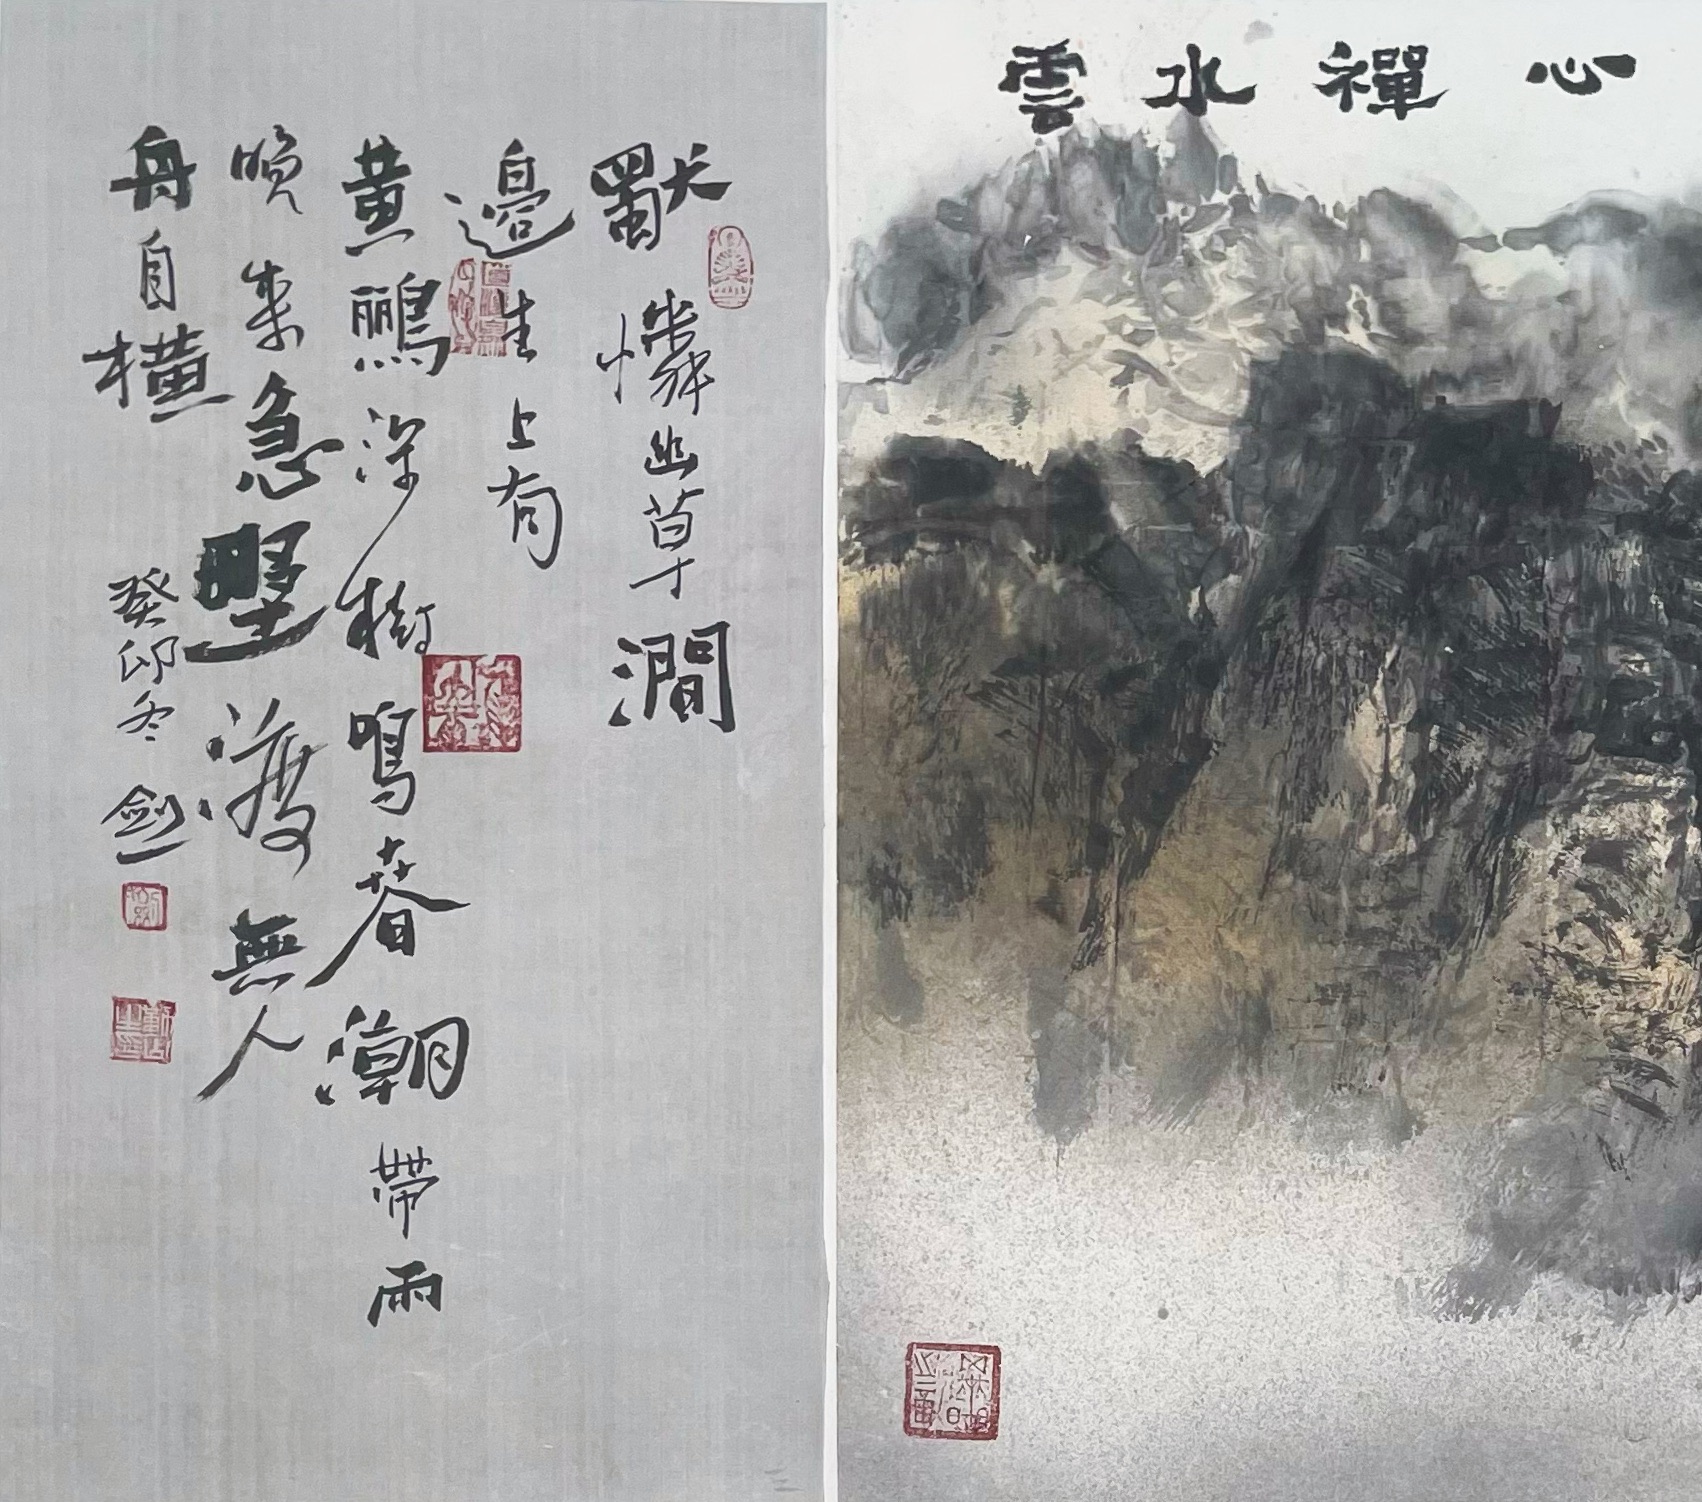 獨憐幽草澗
邊生上有
黃鸝深樹鳴春潮帶雨
晚來急野渡無人
舟自橫
癸卯冬劍
雲水禪心